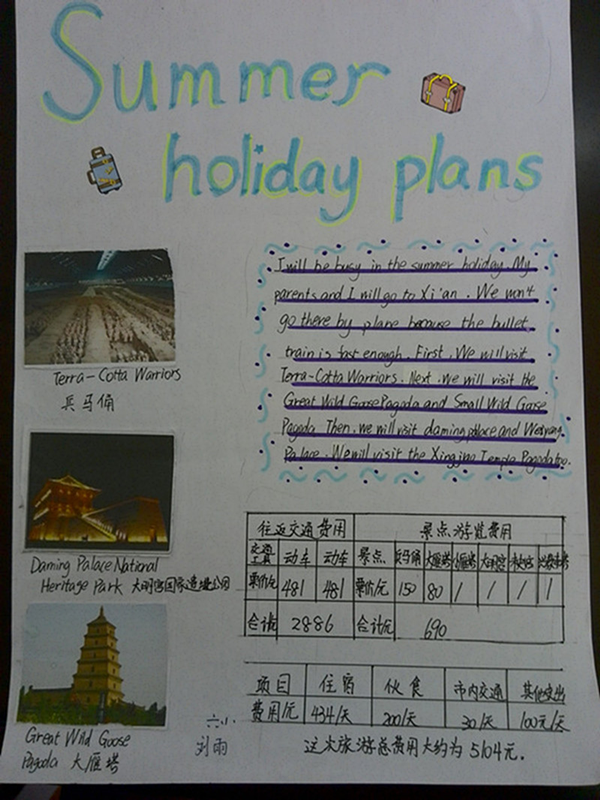 Summer
holiday plans
I will be busy in the summer holiday. My
parents and I will go to Xi'an. We won't
go there by plane because the bullet
train is fast enough. First. We will visit
Terra-Cotta Warriors. Next. we will visit the
Great Wild Goose Pagoda and Small Wild Goose
Pagoda Then. we will visit daming palace and Weiyang
Palace. We will visit the Xingjing Temple Pagoda too.
Terra-Cotta Warriors
兵马俑
Daming Palace National
Heritage Park 大明宫国际遗址公园
Great Wild Goose
Pagoda 大雁塔
往返交通费用 景点游览费用
交通工具 动车 动车 景点 兵马俑 大雁塔 小雁塔 大明宫
票价/元 481 481 票价/元 150 80 / / / /
合计/元 2886 合计/元 690
项目 住宿 伙食 市内交通 其他支出
费用/元 434/天 200/天 30/天 100元/天
这次旅游总费用大约为5104元.
六小
刘雨